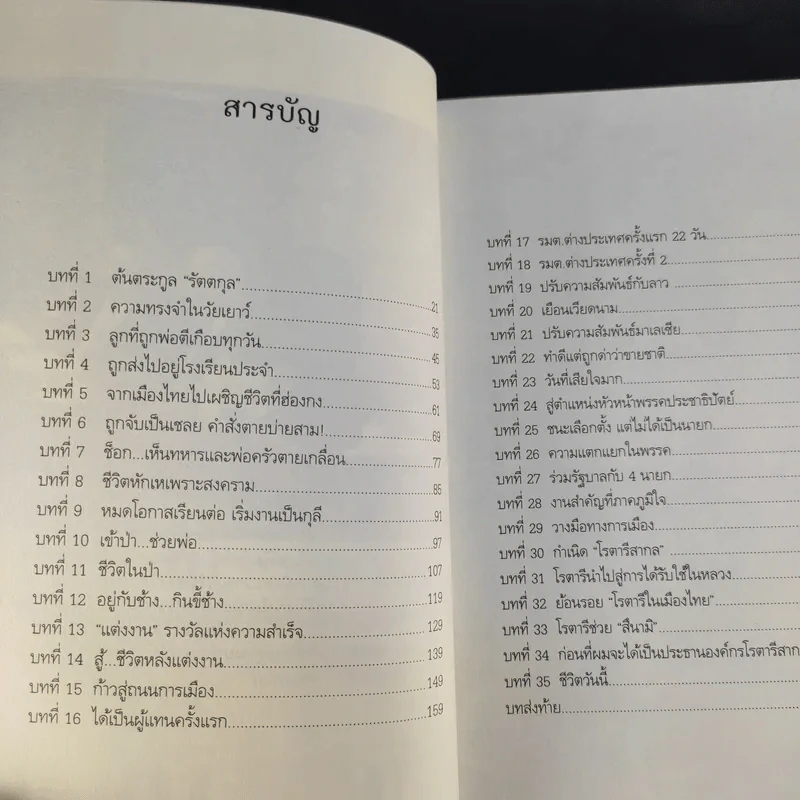 สารบัญ
บทที่ 1 ต้นตระกูล “รัตตกุล”.....21
บทที่ 2 ความทรงจำในวัยเยาว์.....35
บทที่ 3 ลูกที่ถูกพ่อตีเกือบทุกวัน.....45
บทที่ 4 ถูกส่งไปอยู่โรงเรียนประจำ.....53
บทที่ 5 จากเมืองไทยไปเผชิญชีวิตที่ฮ่องกง.....61
บทที่ 6 ถูกจับเป็นเชลย คำสั่งตายบ่ายสาม!.....69
บทที่ 7 ช็อก...เห็นทหารและพ่อครัวตายเกลื่อน.....77
บทที่ 8 ชีวิตหักเหเพราะสงคราม.....85
บทที่ 9 หมดโอกาสเรียนต่อ เริ่มงานเป็นกุลี.....91
บทที่ 10 เข้าป่า...ช่วยพ่อ.....97
บทที่ 11 ชีวิตในป่า.....107
บทที่ 12 อยู่กับช้าง...กินขี้ช้าง.....119
บทที่ 13 “แต่งงาน” รางวัลแห่งความสำเร็จ.....129
บทที่ 14 สู้...ชีวิตหลังแต่งงาน.....139
บทที่ 15 ก้าวสู่ถนนการเมือง.....149
บทที่ 16 ได้เป็นผู้แทนครั้งแรก.....159
บทที่ 17 รมต.ต่างประเทศครั้งแรก 22 วัน.....
บทที่ 18 รมต.ต่างประเทศครั้งที่ 2.....
บทที่ 19 ปรับความสัมพันธ์กับลาว.....
บทที่ 20 เยือนเวียดนาม.....
บทที่ 21 ปรับความสัมพันธ์มาเลเซีย.....
บทที่ 22 ทำดีแต่ถูกด่าว่าขายชาติ.....
บทที่ 23 วันที่เสียใจมาก.....
บทที่ 24 สู่ตำแหน่งหัวหน้าพรรคประชาธิปัตย์.....
บทที่ 25 ชนะเลือกตั้ง แต่ไม่ได้เป็นนายก.....
บทที่ 26 ความแตกแยกในพรรค.....
บทที่ 27 ร่วมรัฐบาลกับ 4 นายก.....
บทที่ 28 งานสำคัญที่ภาคภูมิใจ.....
บทที่ 29 วางมือทางการเมือง.....
บทที่ 30 กำเนิด “โรตารีสากล”.....
บทที่ 31 โรตารีนำไปสู่การได้รับใช้ในหลวง.....
บทที่ 32 ย้อนรอย “โรตารีในเมืองไทย”.....
บทที่ 33 โรตารีช่วย “สึนามิ”.....
บทที่ 34 ก่อนที่ผมจะได้เป็นประธานองค์กรโรตารีสาก
บทที่ 35 ชีวิตวันนี้.....
บทส่งท้าย.....